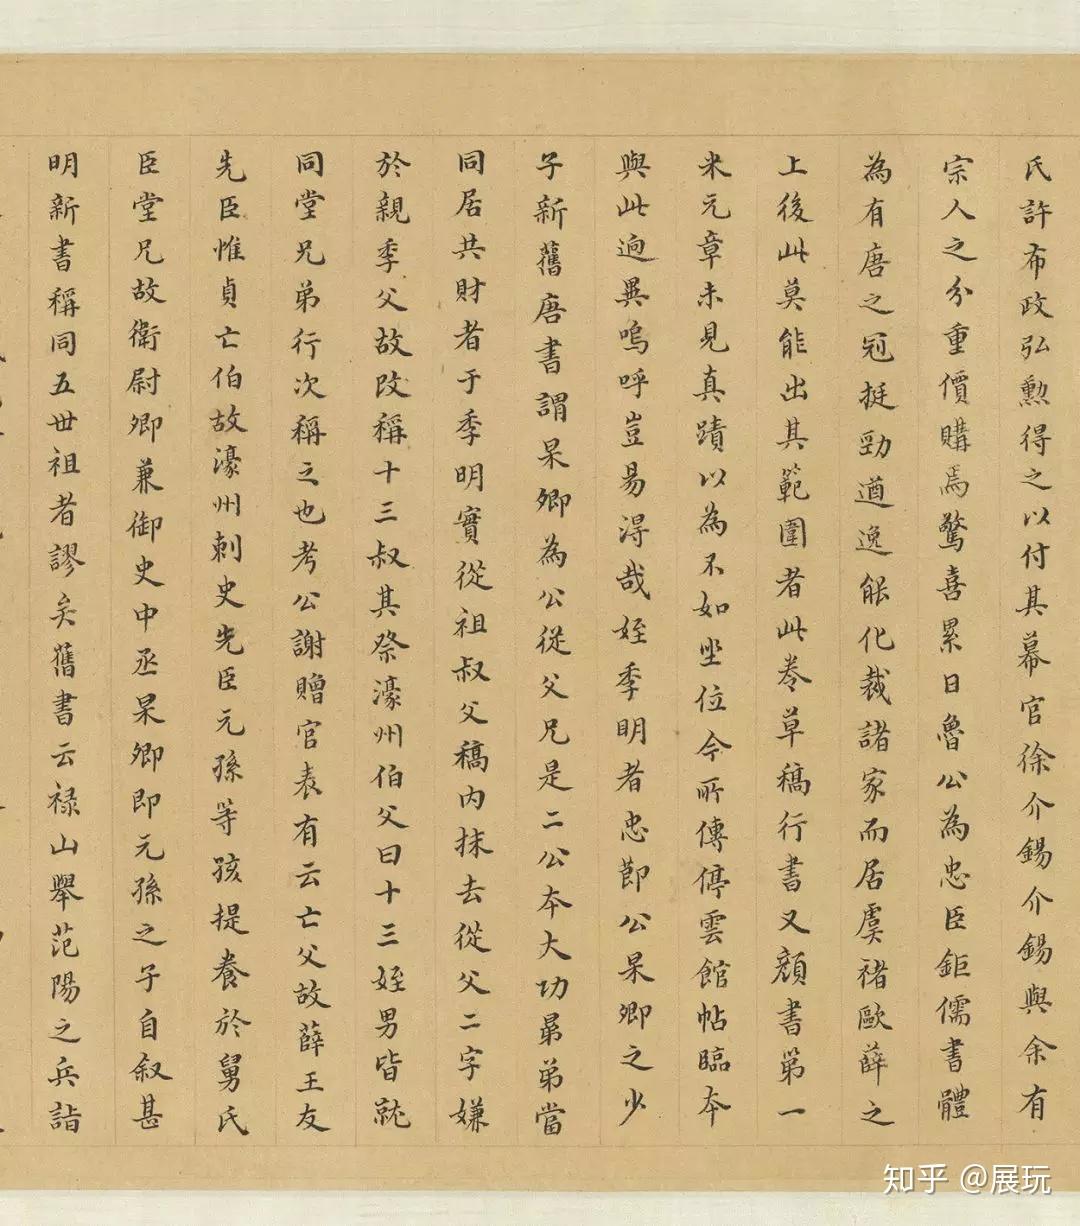 氏許布政弘勲得之以付其幕官徐介錫介錫與余有
宗人之分重價購焉驚喜累日魯公為忠臣鉅儒書體
為有唐之冠挺勁遒逸能化裁諸家而居虞褚歐薛之
上後此莫能出其範圍者此卷草稿行書又顏書第一
米元章未見真蹟以為不如坐位今所傳停雲館帖臨本
與此逈異嗚呼豈易淂哉姪季明者忠節公杲卿之少
子新舊唐書謂杲卿為公從父兄是二公本大功昴弟當
同居共財者于季明實從祖叔父稿内抹去從父二字嫌
於親季父故改稱十三叔其祭濠州伯父曰十三姪男皆就
同堂兄弟行次稱之也考公謝贈官表有云亡父故薛王友
先臣惟貞亡伯故濠州刺史先臣元孫等孩提養於舅氏
臣堂兄故衛尉卿兼御史中丞杲卿即元孫之子自叙甚
明新書稱同五世祖者謬矣舊書云禄山舉范陽之兵詣
知乎 @展玩